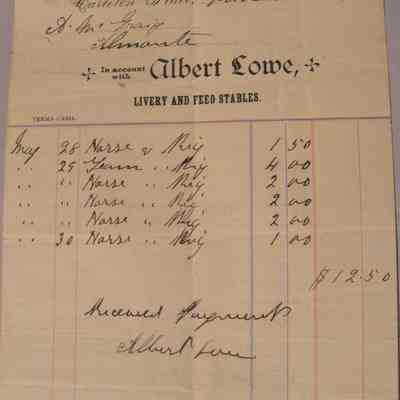 Carleton Place,
A. Mc Graig
Almonte
In account with Albert Lowe,
LIVERY AND FEED STABLES.
TERMS CASH.
May 28 Horse & Rig 1 50
" 29 Team " Rig 4 00
" " Horse " Rig 2 00
" " Horse " Rig 2 00
" " Horse " Rig 2 00
" 30 Horse " Rig 1 00
$12.50
Received Payment
Albert Lowe